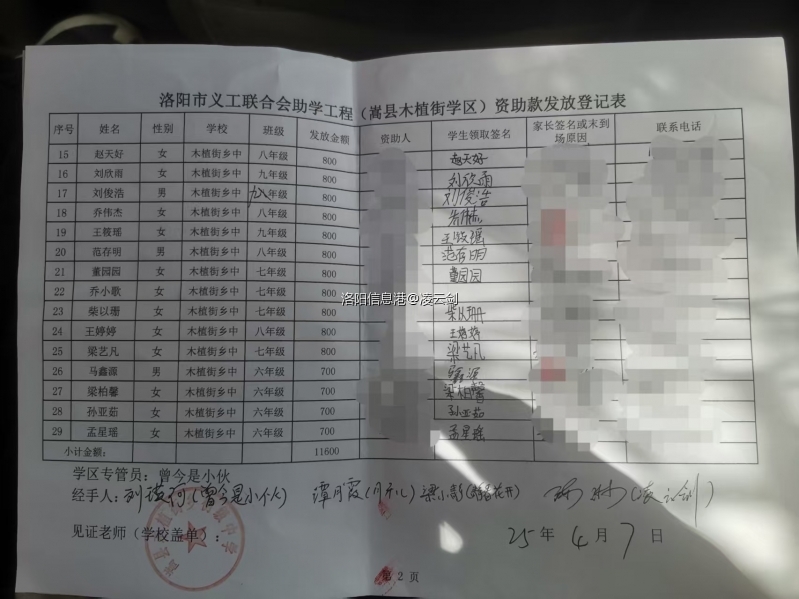 洛阳市义工联合会助学工程（嵩县木植街学区）资助款发放登记表
序号 姓名 性别 学校 班级 发放金额 资助人 学生领取签名 家长签名或未到场原因 联系电话
15 赵天好 女 木植街乡中 八年级 800 赵天好
16 刘欣雨 女 木植街乡中 九年级 800 刘欣雨
17 刘俊浩 男 木植街乡中 九 八年级 800 刘俊浩
18 乔伟杰 女 木植街乡中 八年级 800
19 王筱瑶 女 木植街乡中 九年级 800 王筱瑶
20 范存明 男 木植街乡中 八年级 800 范存明
21 董园园 女 木植街乡中 七年级 800 董园园
22 乔小歌 女 木植街乡中 七年级 800
23 柴以珊 女 木植街乡中 七年级 800 柴以珊
24 王婷婷 女 木植街乡中 八年级 800 王婷婷
25 梁艺凡 女 木植街乡中 七年级 800 梁艺凡
26 马鑫源 男 木植街乡中 六年级 700
27 梁柏馨 女 木植街乡中 六年级 700 梁柏馨
28 孙亚茹 女 木植街乡中 六年级 700 孙亚茹
29 孟星瑶 女 木植街乡中 六年级 700 孟星瑶
小计金额： 11600
洛阳信息港@凌云剑
学区专管员：曾今是小伙
经手人：（曾今是小伙） 谭月霞（月牙儿） 梁小彭（静待花开） （凌云剑）
见证老师（学校盖单）：
25 年 4 月 7 日
第 2 页